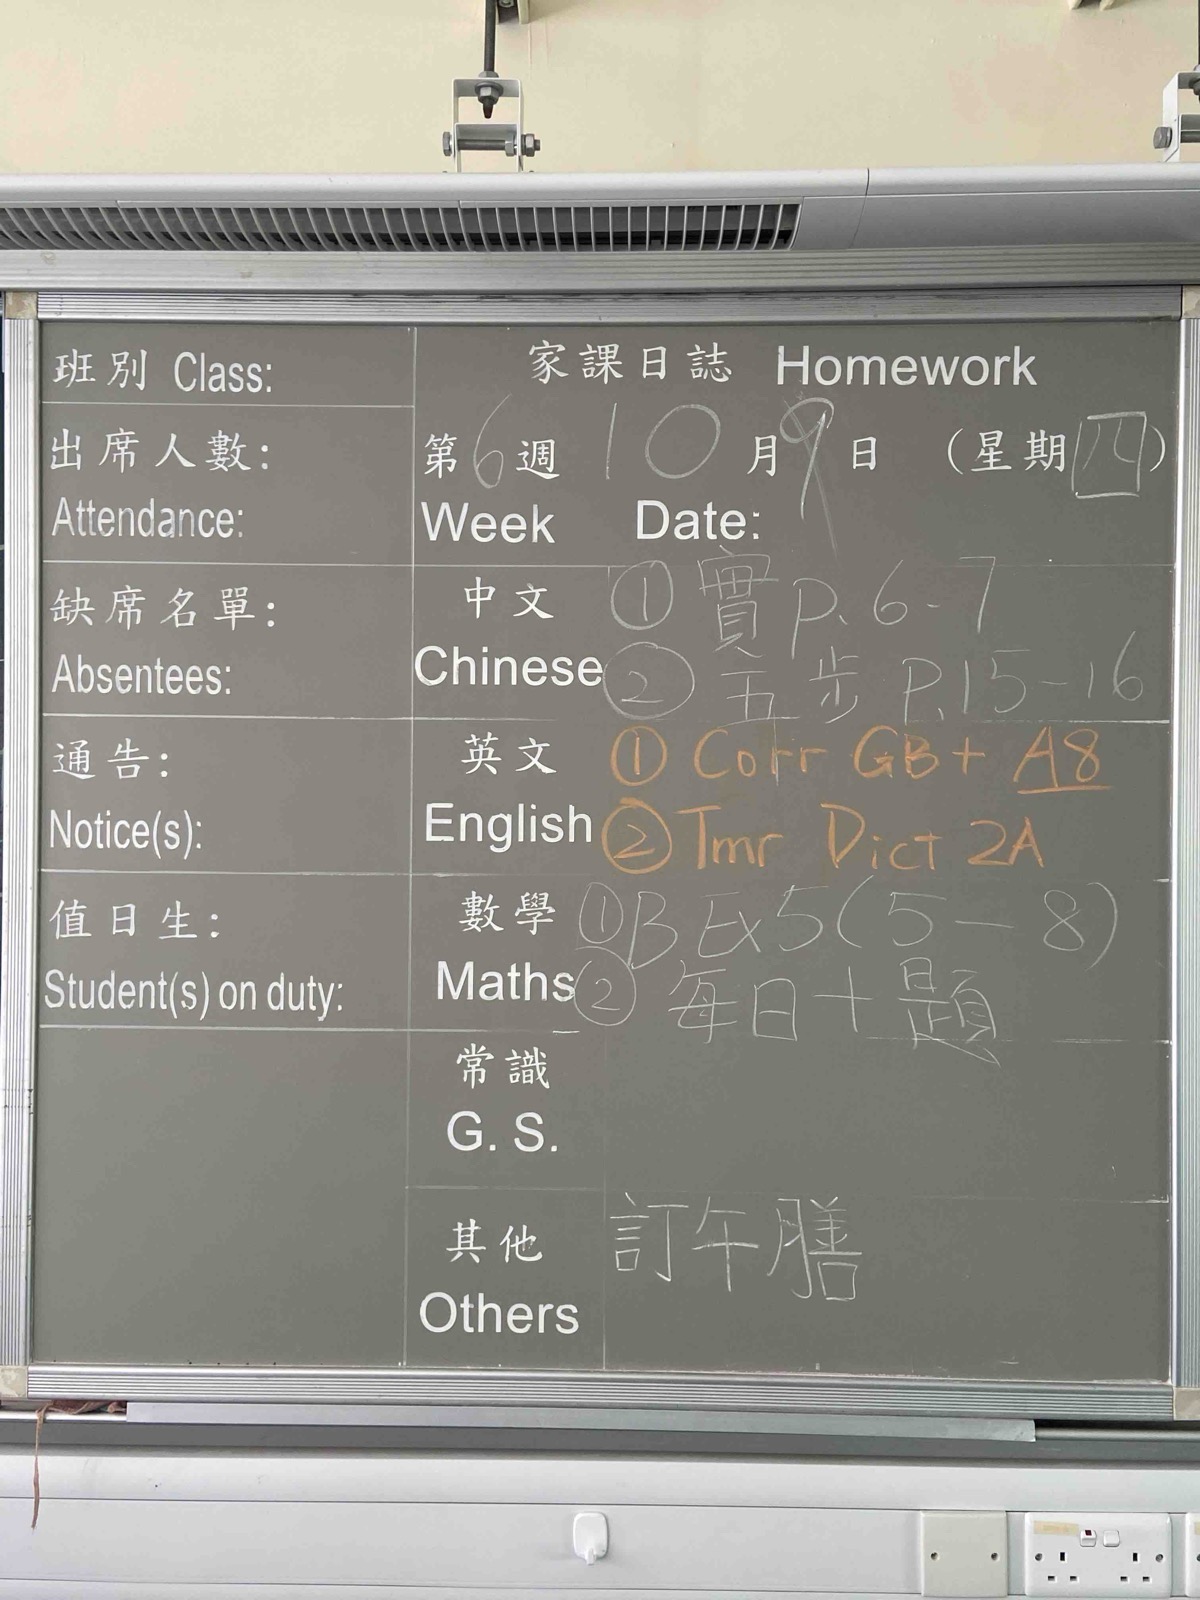 班別 Class:
出席人數:
Attendance:
缺席名單:
Absentees:
通告:
Notice(s):
值日生:
Student(s) on duty:
家課日誌 Homework
第6週 10月9日 (星期四)
Week Date:
中文 ① 實 P. 6-7
Chinese ② 五步 P.15-16
英文 ① Corr GB + A8
English ② Tmr Dict 2A
數學 ① B Ex5 (5-8)
Maths ② 每日十題
常識
G. S.
其他 訂午膳
Others